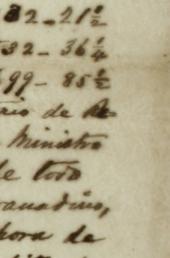 32-21½
532-36¼
699-85½
taio de Re-
Ministro
de todo
anadino,
hora de